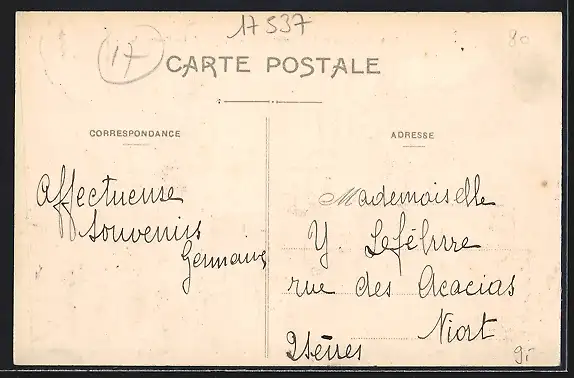 17537
80
17
CARTE POSTALE
CORRESPONDANCE
ADRESSE
Affectueuse
Souvenirs
Germaine
Mademoiselle
Y. Lefébvre
rue des Acacias
Niort
2 Sèvres
9.-